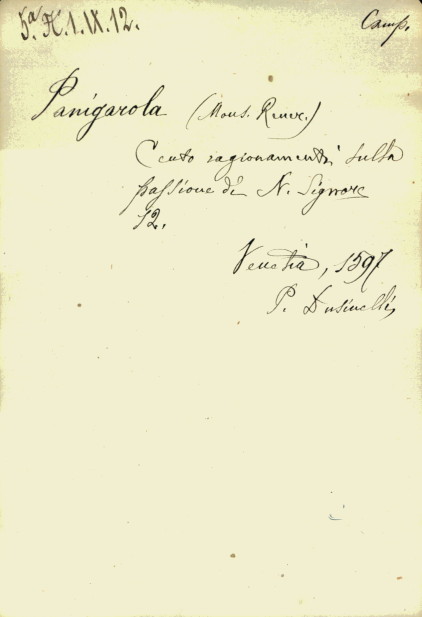 5.ª K.1.IX.12.
Camp.
Panigarola (Mons. Rever.)
Cento ragionamenti sulla
passione di N. Signore
12.
Venetia, 1597
P. Dusinelli,